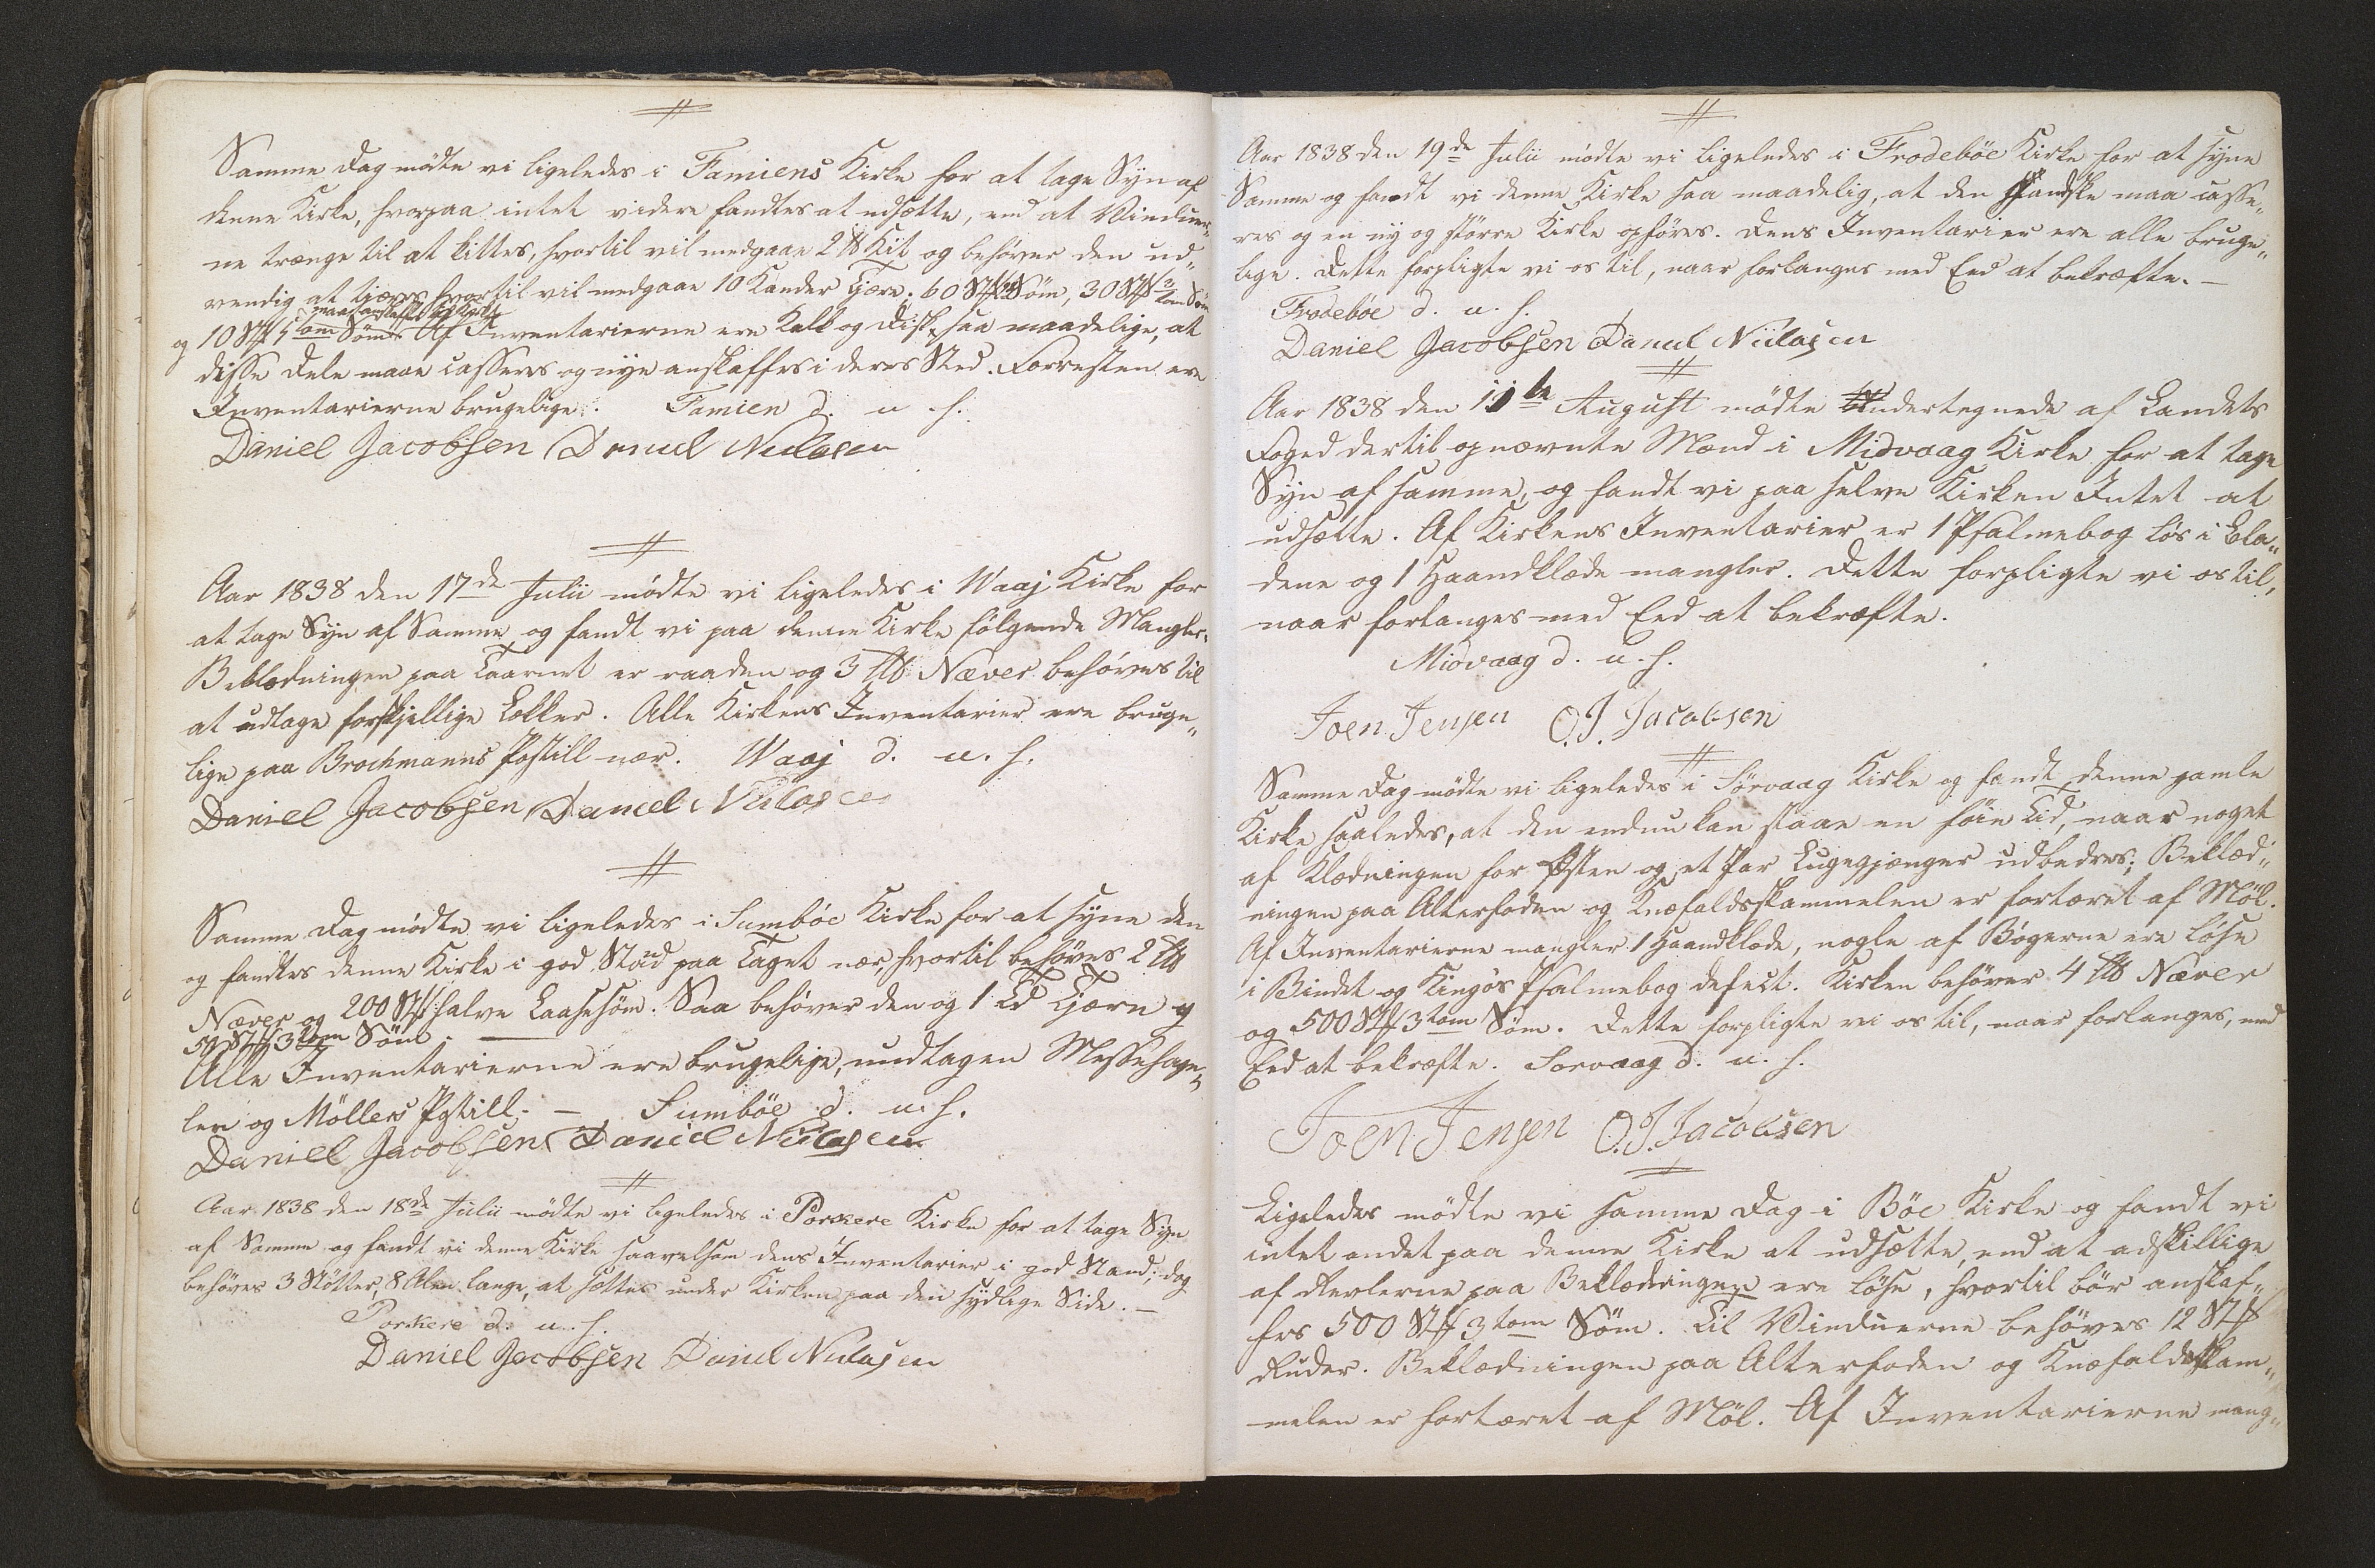 Samme Dag mødte vi ligeledes i Famiens Kirke for at tage Syn af
denne Kirke, hvorpaa intet videre fandtes at udsætte, end at Vinduer„
ne trænge til at kittes, hvortil vil medgaae 2 ℔ Kit og behøver den ud„
vendig at tjæres hvortil vil medgaae 10 Kander Tjære; 60 Stk Söm, 30 Stk 3 tom Söm
og 10 Stk 5 tom Söm maae anskaffes Af Inventarierne ere Kalk og Disk saa maadelige, at
disse Dele maae casseres og nye anskaffes i deres Sted. Forresten ere
Inventarierne brugelige. Famien d. u. s.
Daniel Jacobsen Daniel Niclasen
Aar 1838 den 17de Julii mødte vi ligeledes i Waaj Kirke for
at tage Syn af Samme og fandt vi paa denne Kirke følgende Mangler.
Beklædningen paa Taarnet er raaden og 3 ℔ Næver behøves til
at udtage forskjellige Lekker. Alle Kirkens Inventarier ere bruge„
lige paa Brochmanns Postill nær. Waaj d. u. s.
Daniel Jacobsen Daniel Niclasen
Samme Dag mødte vi ligeledes i Sumböe Kirke for at syne den
og fandtes denne Kirke i god Stand paa Taget nær, hvortil behøves 2 ℔
Næver og 200 Stk halve Laasesöm. Saa behøver den og 1 Td Tjære og
50 Stk 3 tom Söm. —
Alle Inventarierne ere brugelige, undtagen Messehage„
len og Möllers Postill. — Sumböe d. u. s.
Daniel Jacobsen Daniel Niclasen
Aar 1838 den 18de Julii mødte vi ligeledes i Porkere Kirke for at tage Syn
af Samme og fandt vi denne Kirke saavelsom dens Inventarier i god Stand; dog
behøves 3 Støtter, 8 Alen lange, at sættes under Kirken paa den sydlige Side. —
Porkere d. u. s.
Daniel Jacobsen Daniel Niclasen
Aar 1838 den 19de Julii mødte vi ligeledes i Frodeböe Kirke for at syne
Samme og fandt vi denne Kirke saa maadelig, at den maa casse„
res og en ny og større Kirke opføres. Dens Inventarier ere alle bruge„
lige. Dette forpligte vi os til, naar forlanges med Eed at bekræfte. —
Frodeböe d. u. s.
Daniel Jacobsen Daniel Niclasen
Aar 1838 den 11te August mødte Undertegnede af Landets
Foged dertil opnævnte Mænd i Midvaag Kirke for at tage
Syn af samme, og fandt vi paa selve Kirken Intet at
udsætte. Af Kirkens Inventarier er 1 Psalmebog løs i Bla„
dene og 1 Haandklæde mangler. Dette forpligte vi os til,
naar forlanges med Eed at bekræfte.
Midvaag d. u. s.
Joen Jensen O. J. Jacobsen
Samme Dag mødte vi ligeledes i Sörvaag Kirke og fandt denne gamle
Kirke saaledes, at den endnu kan staae en föie Tid, naar noget
af Klædningen for Østen og et Par Lugegjænger udbedres; Beklæd„
ningen paa Alterfoden og Knæfaldsskammelen er fortæret af Möl.
Af Inventarierne mangler 1 Haandklæde, nogle af Bøgerne ere løse
i Bindet og Kingos Psalmebog defect. Kirken behøver 4 ℔ Næver
og 500 Stk 3 tom Söm. Dette forpligte vi os til, naar forlanges, med
Eed at bekræfte. Sorvaag d. u. s.
Joen Jensen O. J. Jacobsen
Ligeledes mødte vi samme Dag i Böe Kirke og fandt vi
intet andet paa denne Kirke at udsætte, end at adskillige
af Revlerne paa Beklædningen ere løse, hvortil bør anskaf„
fes 500 Stk 3 tom Söm. Til Vinduerne behøves 12 Stk
Ruder. Beklædningen paa Alterfoden og Knæfaldsskam„
melen er fortæret af Möl. Af Inventarierne mang„